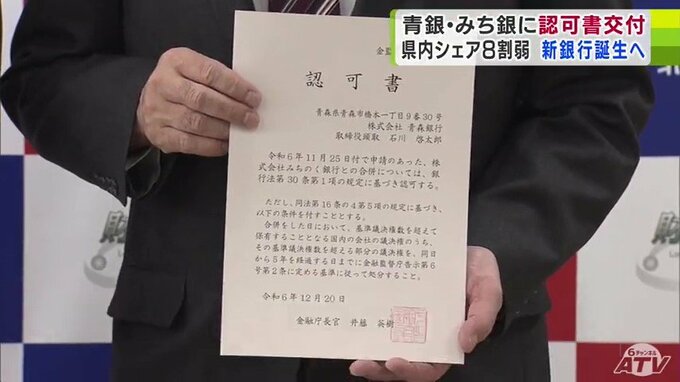 青銀・みち銀に認可書交付
県内シェア8割弱 新銀行誕生へ
金監
認可書
青森県青森市橋本一丁目9番30号
株式会社 青森銀行
取締役頭取 石川 啓太郎
令和6年11月25日付で申請のあった、株
式会社みちのく銀行との合併については、銀
行法第30条第1項の規定に基づき認可する。
ただし、同法第16条の4第5項の規定に基づき、
以下の条件を付すこととする。
合併をした日において、基準議決権数を超えて
保有することとなる国内の会社の議決権のうち、
その基準議決権数を超える部分の議決権を、同日
から5年を経過する日までに金融監督庁告示第6
号第2条に定める基準に従って処分すること。
令和6年12月20日
金融庁長官 井藤 英樹
財
財
北
6チャンネル
ATV